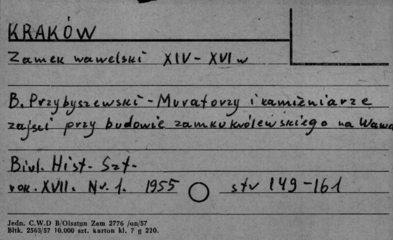 KRAKÓW
Zamek wawelski XIV-XVI w
B. Przybyszewski - Muratorzy i kamieniarze
zajęci przy budowie zamku królewskiego na Wawe
Biul. Hist. Szt.
rok. XVII. Nr. 1. 1955 str 149-161
Jedn. C.W.D B/Olsztyn Zam 2776 /on/57
Bltk. 2563/57 10.000 szt. karton kl. 7 g 220.